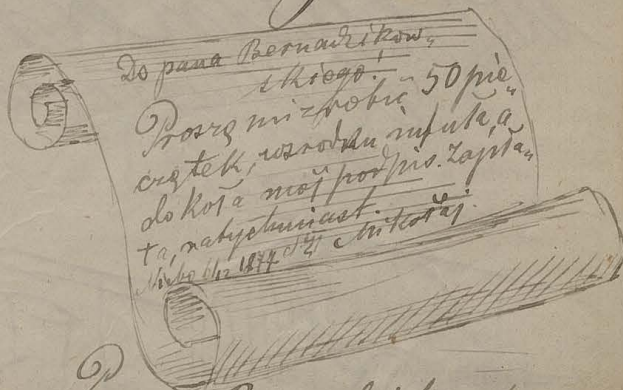 Do pana Bernadzikow„
skiego!
Proszę mi zrobić 50 pie„
czątek, wśrodku infuła, a
dokoła mój podpis. Zapła„
ta, natychmiast.
Niebo 6/12 1877 Mikołaj.